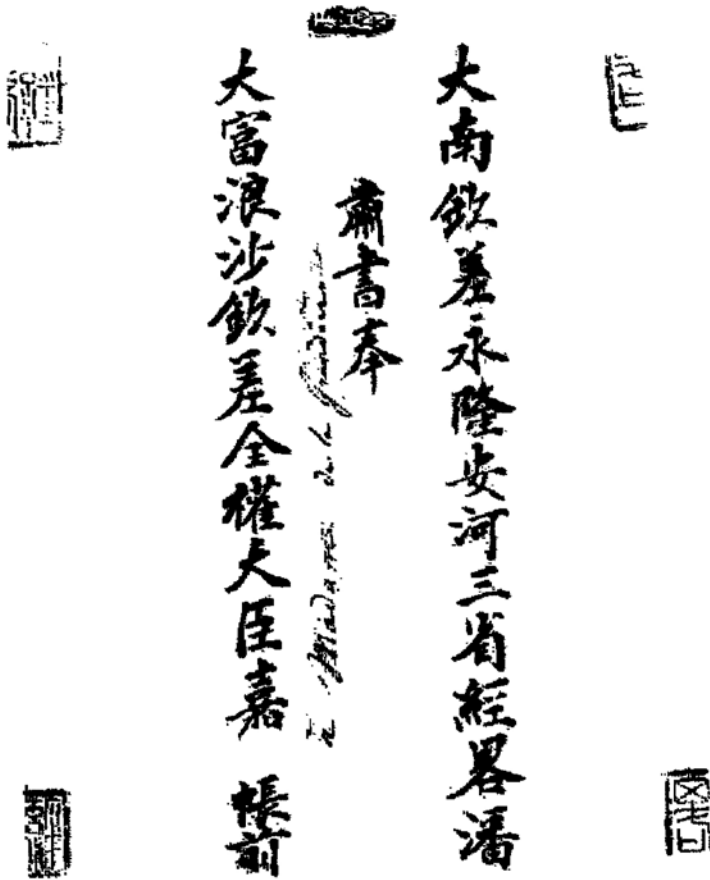 大南欽差永隆安河三省經畧潘
肅書奉
大富浪沙欽差全權大臣嘉 帳前